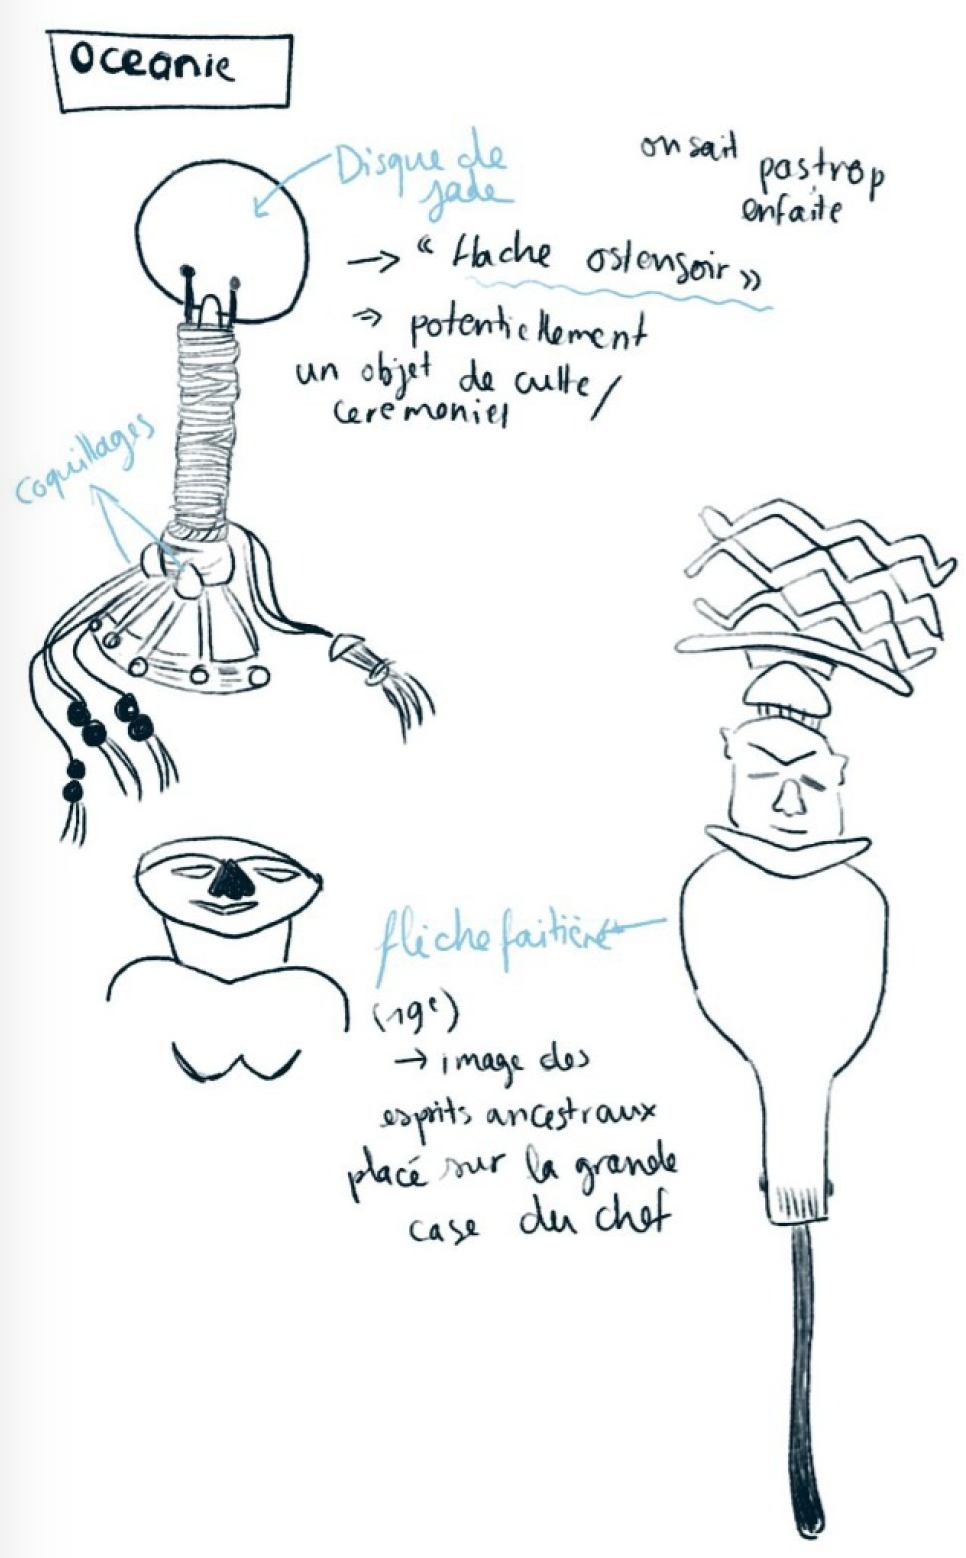 oceanie
Disque de
jade
on sait
pas trop
enfaite
→ « Hache ostensoir »
⇒ potentiellement
un objet de culte /
ceremoniel
coquillages
flèche faitière
(19e)
→ image des
esprits ancestraux
placé sur la grande
case du chef